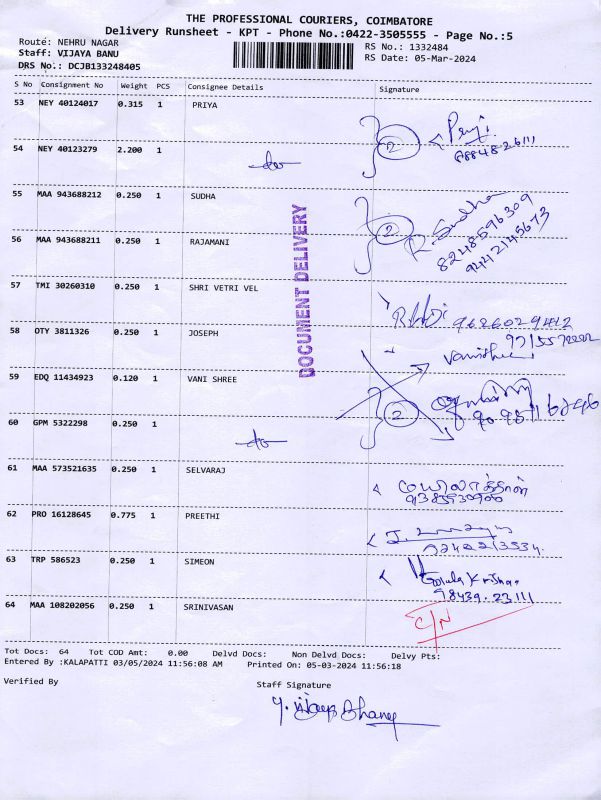 THE PROFESSIONAL COURIERS, COIMBATORE
Delivery Runsheet - KPT - Phone No.:0422-3505555 - Page No.:5
Route: NEHRU NAGAR
RS No.: 1332484
Staff: VIJAYA BANU
RS Date: 05-Mar-2024
DRS No.: DCJB133248405
S No Consignment No Weight PCS Consignee Details Signature
53 NEY 40124017 0.315 1 PRIYA
2
54 NEY 40123279 2.200 1
-do-
55 MAA 943688212 0.250 1 SUDHA
2 R. Sudha
8248596309
9442145673
56 MAA 943688211 0.250 1 RAJAMANI
DOCUMENT DELIVERY
57 TMI 30260310 0.250 1 SHRI VETRI VEL
9626029442
58 OTY 3811326 0.250 1 JOSEPH
Vanishree
59 EDQ 11434923 0.120 1 VANI SHREE
2
60 GPM 5322298 0.250 1
-do-
61 MAA 573521635 0.250 1 SELVARAJ
9385930900
62 PRO 16128645 0.775 1 PREETHI
63 TRP 586523 0.250 1 SIMEON
98439.23111
64 MAA 108202056 0.250 1 SRINIVASAN
C/N
Tot Docs: 64 Tot COD Amt: 0.00 Delvd Docs: Non Delvd Docs: Delvy Pts:
Entered By :KALAPATTI 03/05/2024 11:56:08 AM Printed On: 05-03-2024 11:56:18
Verified By
Staff Signature